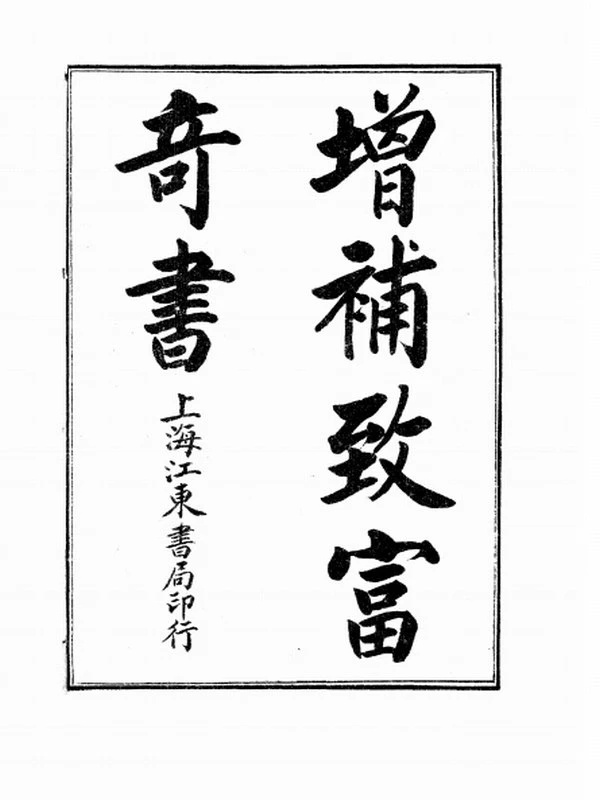 增補致富
奇書
上海江東書局印行